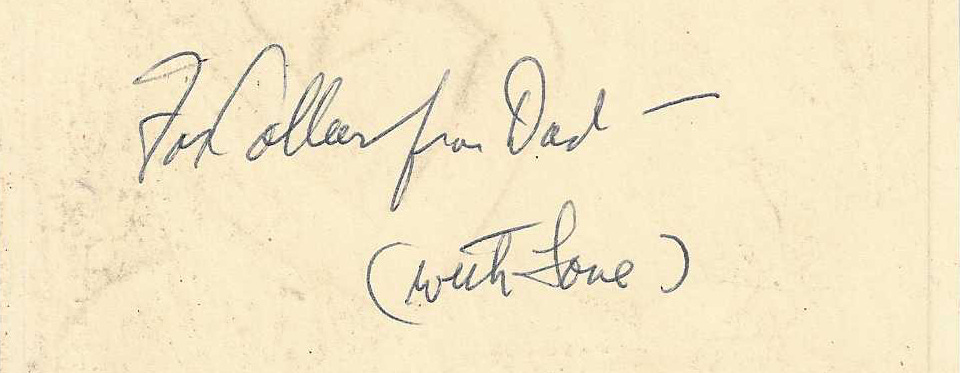 For Colleen from Dad —
(with Love)